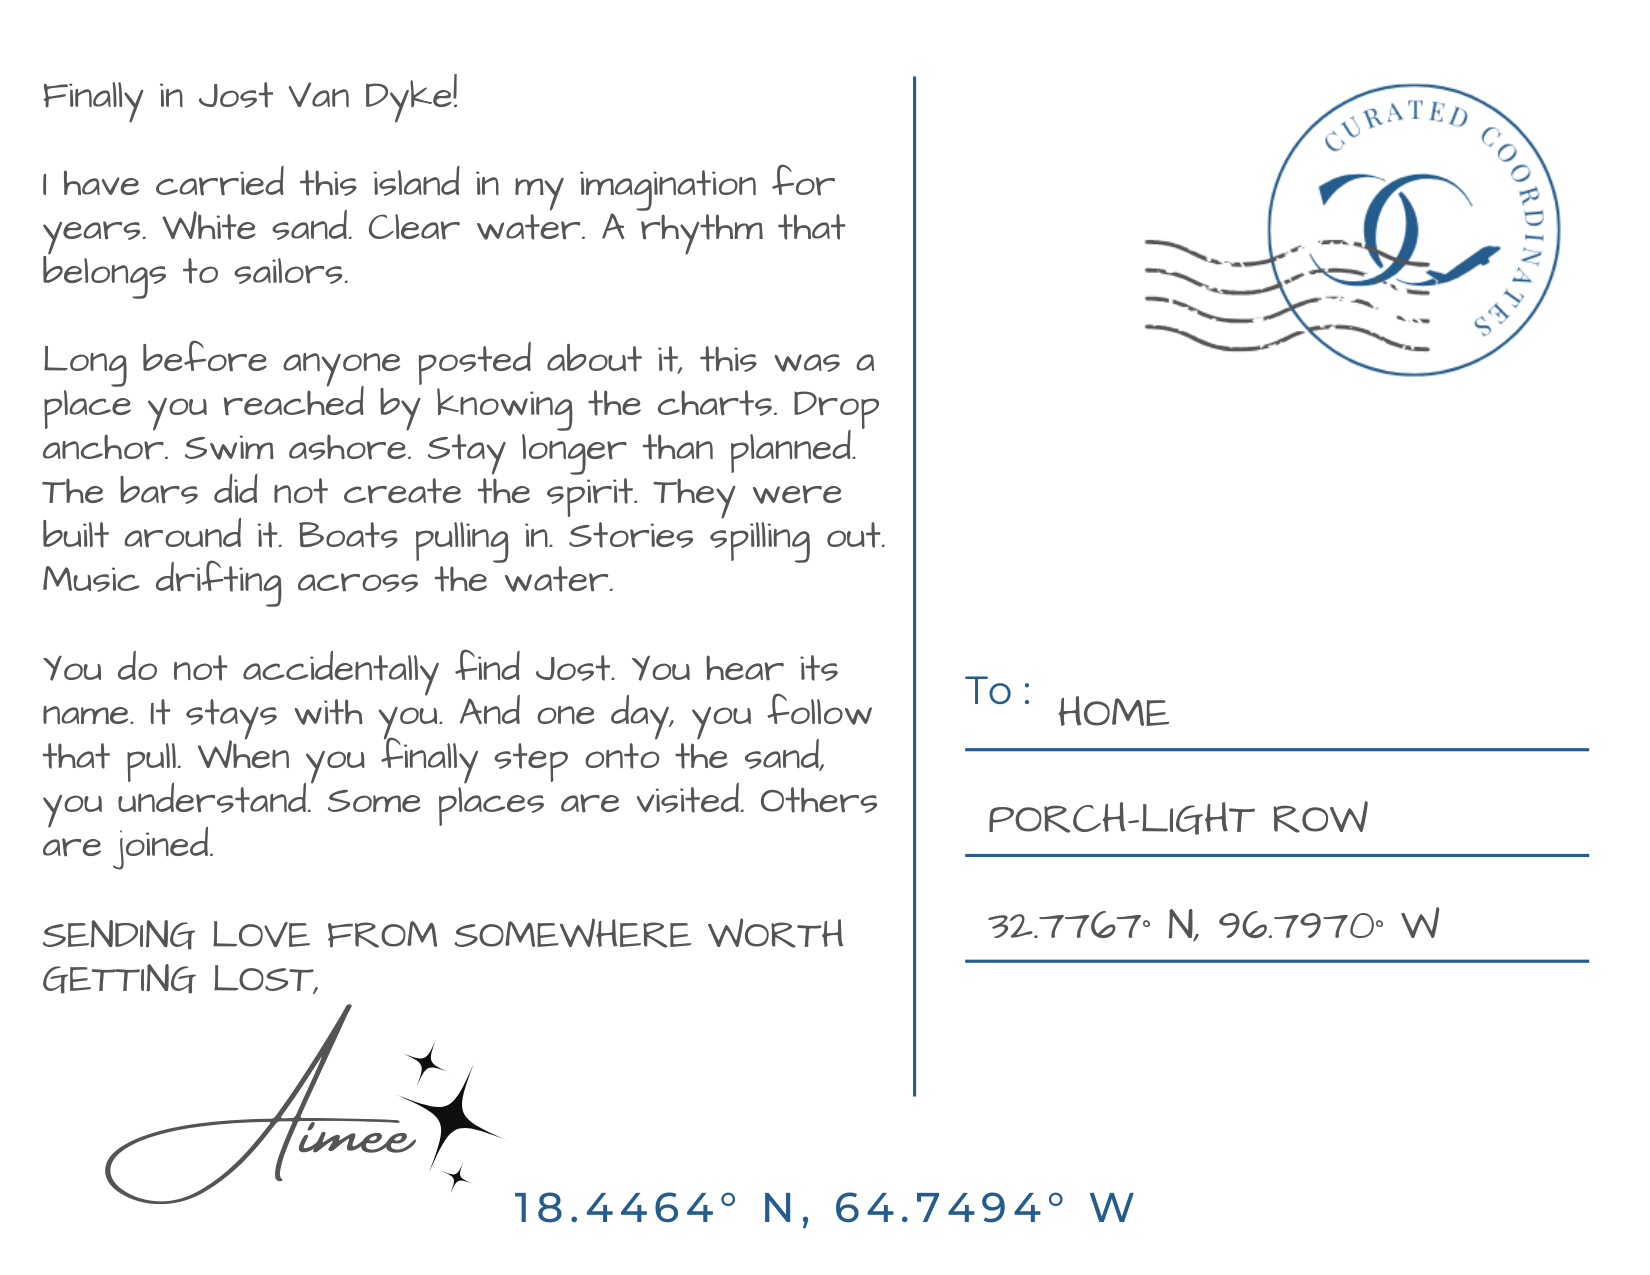 Finally in Jost Van Dyke!
I have carried this island in my imagination for
years. White sand. Clear water. A rhythm that
belongs to sailors.
Long before anyone posted about it, this was a
place you reached by knowing the charts. Drop
anchor. Swim ashore. Stay longer than planned.
The bars did not create the spirit. They were
built around it. Boats pulling in. Stories spilling out.
Music drifting across the water.
You do not accidentally find Jost. You hear its
name. It stays with you. And one day, you follow
that pull. When you finally step onto the sand,
you understand. Some places are visited. Others
are joined.
SENDING LOVE FROM SOMEWHERE WORTH
GETTING LOST,
Aimee
CURATED COORDINATES
CC
To: HOME
PORCH-LIGHT ROW
32.7767° N, 96.7970° W
18.4464° N, 64.7494° W